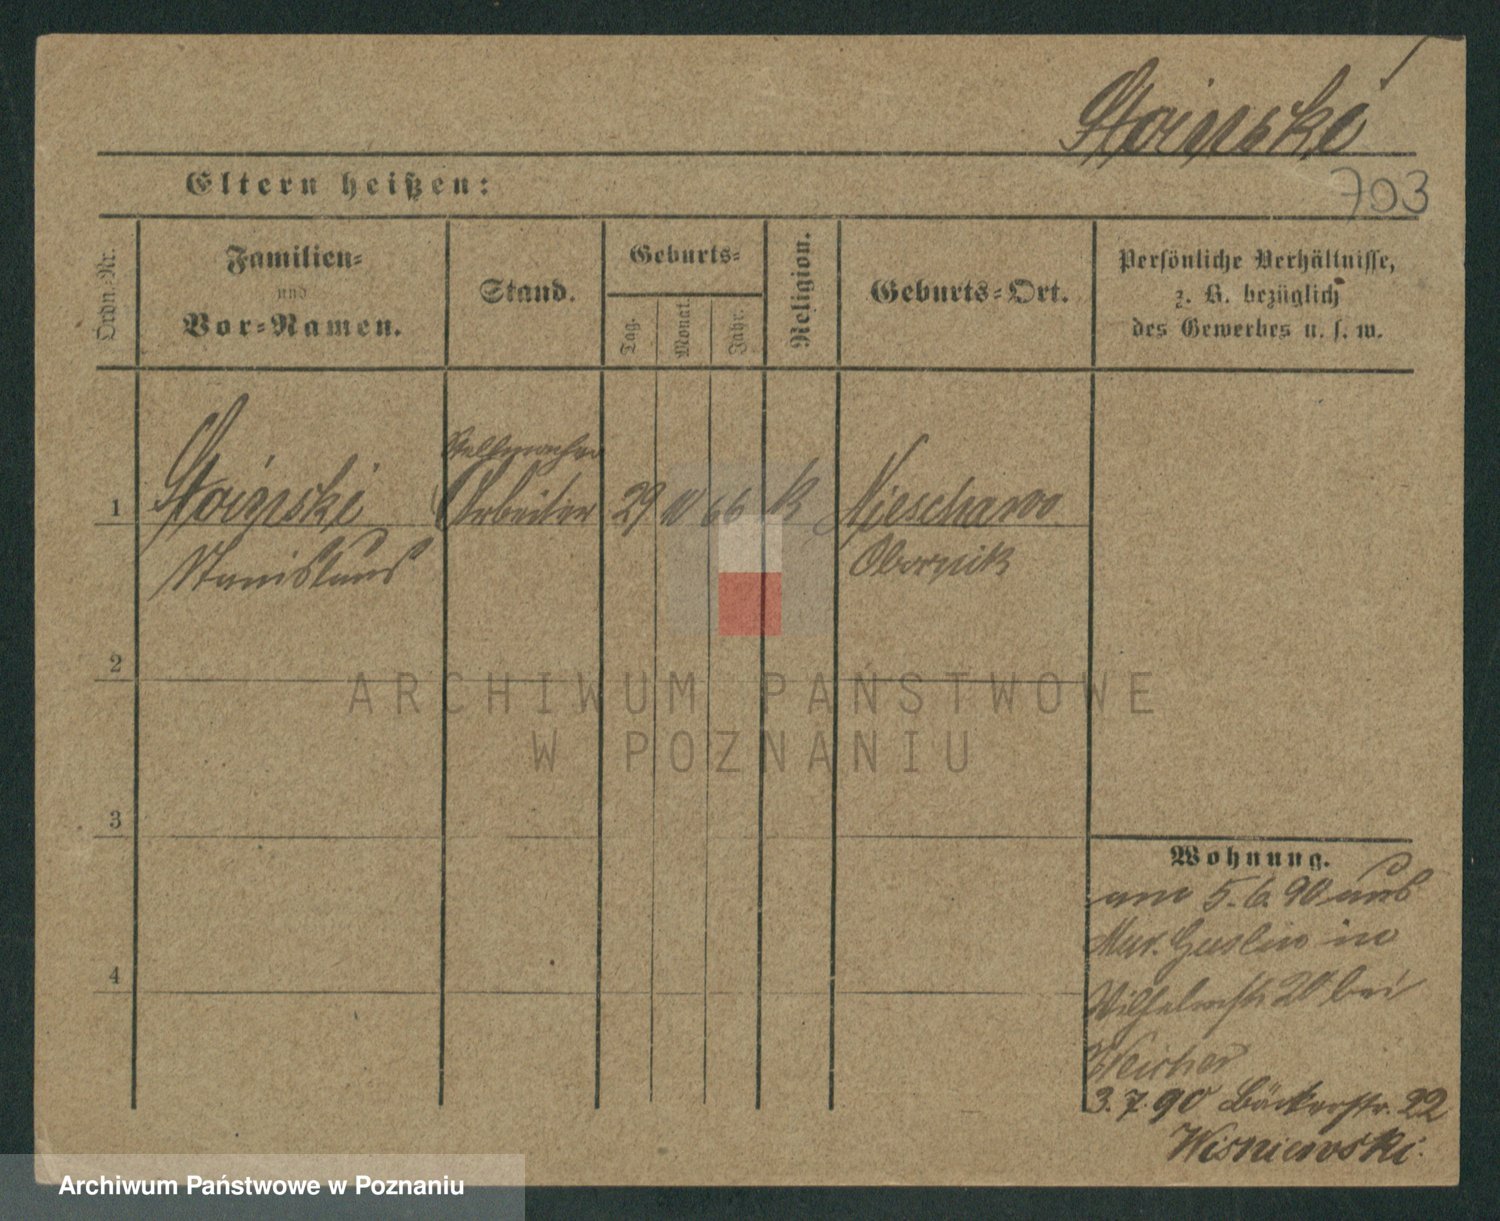 Stoinski
703
Eltern heißen:
Ordn.-Nr.
Familien-
und
Vor-Namen.
Stand.
Geburts-
Tag.
Monat.
Jahr.
Religion.
Geburts-Ort.
Persönliche Verhältnisse,
z. B. bezüglich
des Gewerbes u. s. w.
Stellmacher
1 Stoinski Arbeiter 29 66 K Nieschawo
Stanislaus Obornik
2
3
4
Wohnung.
am 5.6.90 aus
Mur. Goslin in
Wilhelmstr 20 bei
3.7.90 Bäckerstr. 22
Wisniewski.
ARCHIWUM PAŃSTWOWE
W POZNANIU
Archiwum Państwowe w Poznaniu